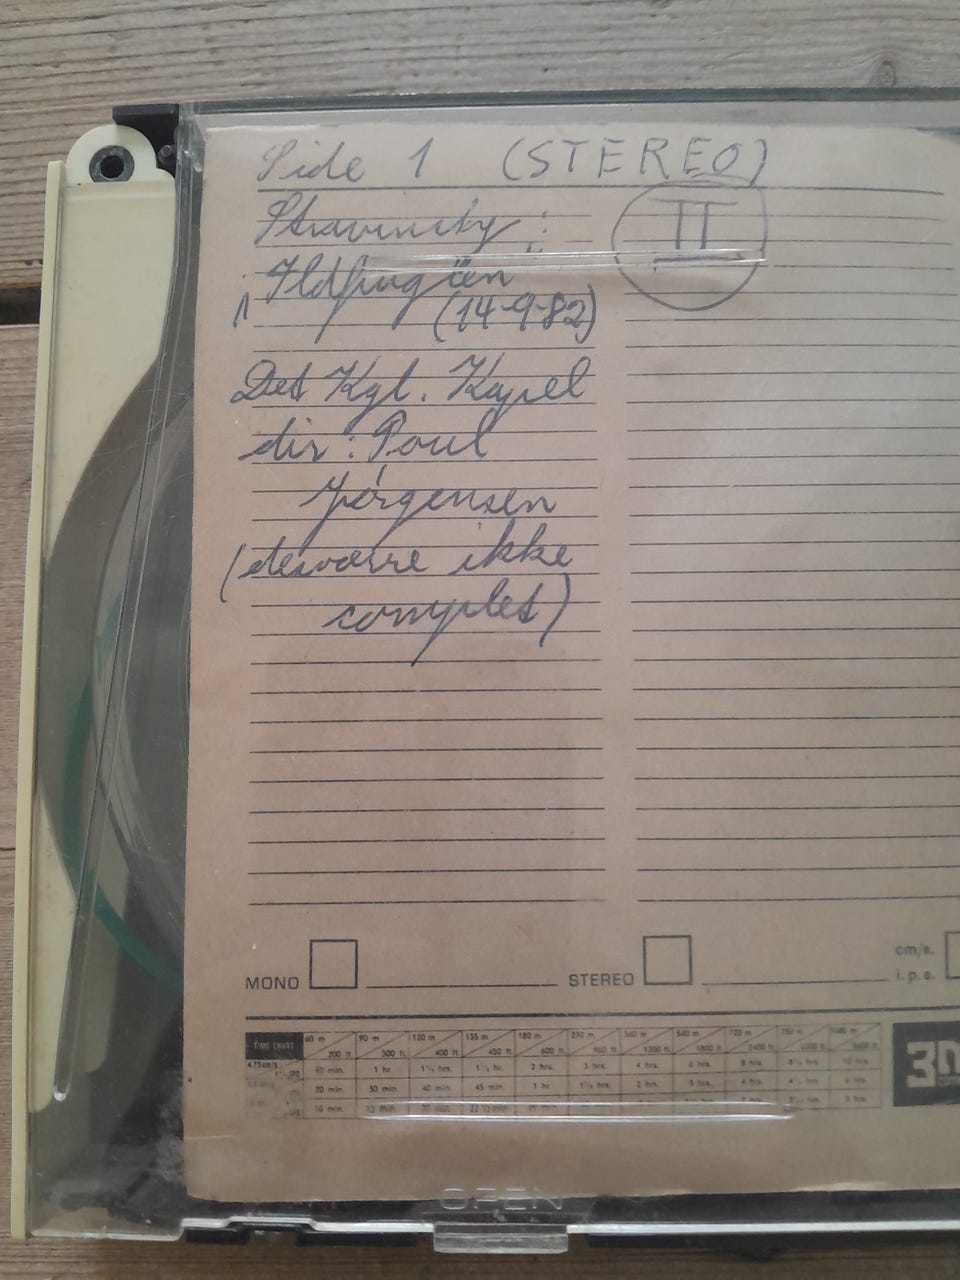 Side 1 (STEREO)
Stravinsky:
II
"Ildfuglen"
(14-9-82)
Det Kgl. Kapel
dir: Poul
Jørgensen
(desværre ikke
complet)
MONO
STEREO
cm/s.
i.p.s.
TIME CHART
60 m 90 m 120 m 135 m 180 m 270 m 360 m 540 m 720 m 1080 m
200 ft. 300 ft. 400 ft. 450 ft. 600 ft. 900 ft. 1200 ft. 1800 ft. 2400 ft. 3600 ft.
4.75 cm/s 1 hr. 1½ hrs. 1½ hrs. 2 hrs. 3 hrs. 4 hrs. 6 hrs. 8 hrs. 12 hrs.
20 min. 30 min. 40 min. 45 min. 1 hr. 1½ hrs. 2 hrs. 3 hrs. 4 hrs. 6 hrs.
10 min. 15 min. 20 min. 22½ min.
OPEN